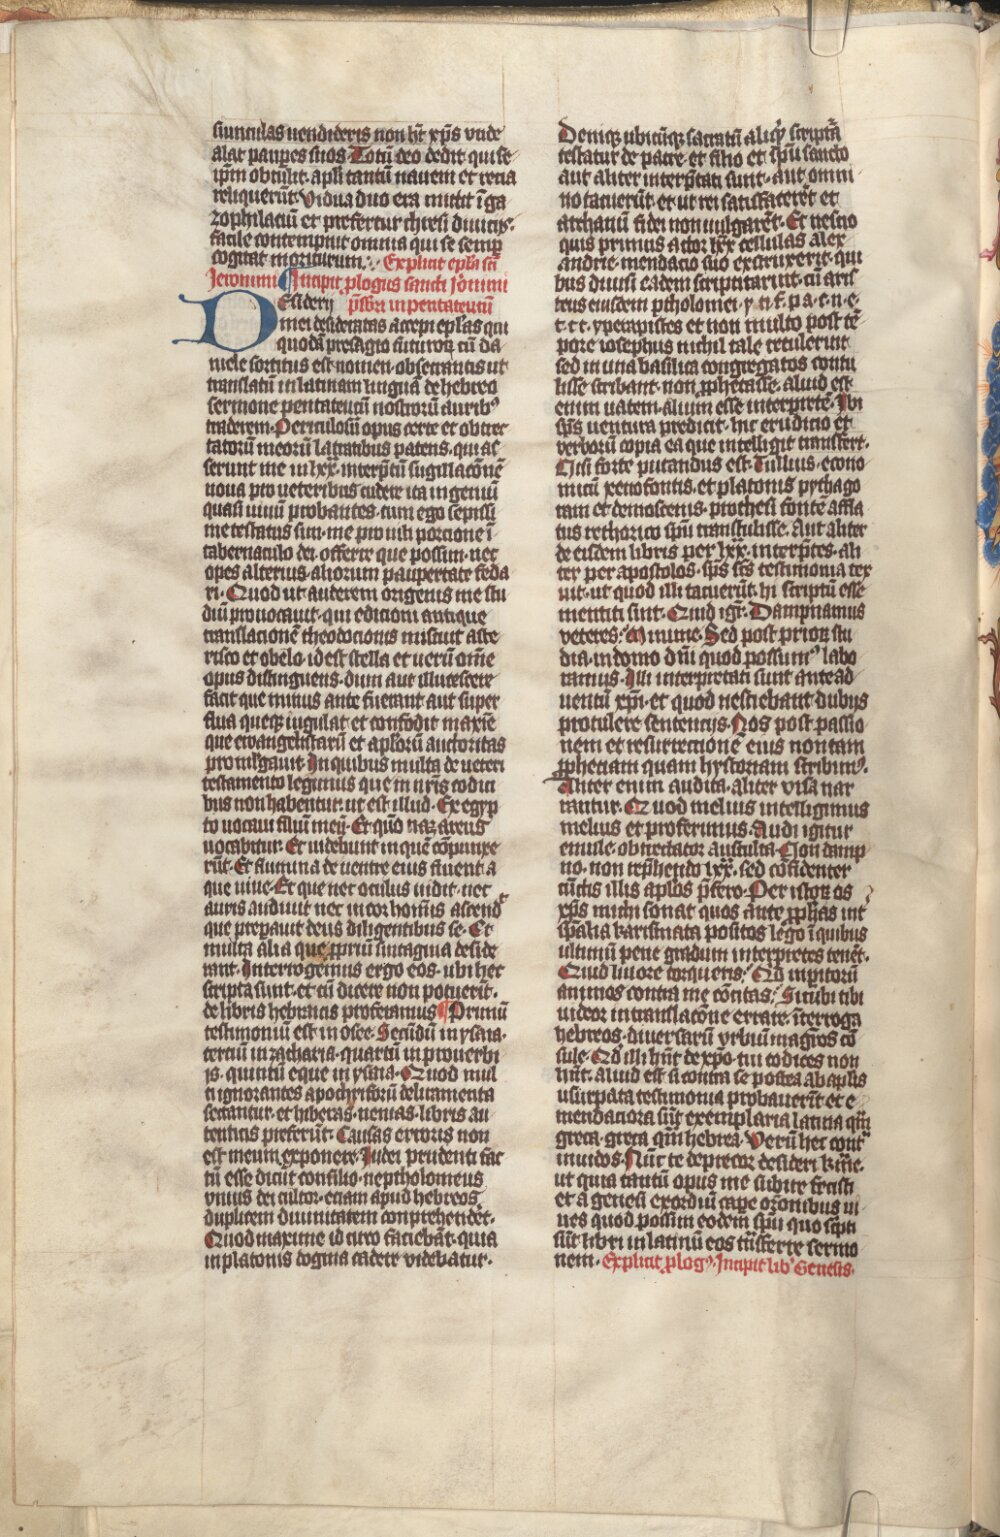 siunculas uendideris non hr̄t xp̄s unde
alat paup̲es suos. Totū deo dedit qui se
ip̄m obtulit. apl̄i tantū nauem et recia
reliquerūt. Vidua duo era mittit ī ga
zophilaciū et prefertur chresi diuicijs.
facile contempnit omnia qui se semp̲
cogitat moriturum. Explicit epl̄a sc̄i
Jeronimi Incipit p̲logus sancti Jeronimi
p̄sbri in pentateucū
DEsiderij
mei desideratas accepi epl̄as qui
quodā presagio futuroꝝ cū da
niele sortitus est nomen. obsecrantis ut
translatū in latinam linguā de hebreo
sermone pentateucū nostrorū aurib⁹
traderem. Periculosū opus certe et obtrec
tatorū meorū latratibus patens. qui as
serunt me in lxx. interp̄tū sugillacōnē
noua pro ueteribus cudere ita ingeniū
quasi uinū probantes. cum ego sepissī
me testatus sim. me pro uili porcione ī
tabernaculo dei. offerre que possim. nec
opes alterius. aliorum paupertate feda
ri. Quod ut auderem origenis me stu
diū prouocauit. qui editioni antique
translacionē theodocionis miscuit aste
risco et obelo. id est stella et ueru om̄e
opus distinguens. dum aut illucescere
facit que minus ante fuerant aut super
flua queqꝫ iugulat et confodit maxīe
que ewangelistarū et aplorū auctoritas
promlgauit. In quibus multa de ueteri
testamento legimus que in nr̄is codici
bus non habentur. ut est illud. Ex egyp
to uocaui filiū meū. Et qūo nazareus
uocabitur. Et uidebunt in quē cōpunxe
rūt. Et flumina de uentre eius fluent a
que uiue. Et que nec oculus uidit. nec
auris audiuit nec in cor hominis ascend
que prepauit deus diligentibus se. Et
multa alia que p̲priū sintagma deside
rant. Interrogemus ergo eos. ubi hec
scripta sunt. et cū dicere non potuerīt.
de libris hebraicis proferamus Primū
testimoniū est in osee. Secūdū in ysaia.
terciū in zacharia. quartū in prouerbi
is. quintū eque in ysaia. Quod mul
ti ignorantes apochriforū deliramenta
sectantur. et hiberas nenias. libris au
tenticis preferūt. Causas erroris non
est meum exponere. Iudei prudenti fac
tū esse dicūt consilio. ne ptholomeus
vnius dei cultor. etiam apud hebreos
duplicem diuinitatem comprehenderet.
Quod maxime id circo faciebāt. quia
in platonis dogma cadere videbatur.
Deniqꝫ ubicūqꝫ sacratū aliqꝫ scriptā
testatur de patre et filio et sp̄u sancto
aut aliter interp̄tati sunt. aut omni
no tacuerūt. et ut rei satisfacerēt et
archanū fidei non uulgarēt. Et nescio
quis primus actor lxx cellulas alex
andrie. mendacio suo exstruxerit. qui
bus diuisi eadem scriptitarint. cū aris
teus eiusdem ptholomei. y. n. f. p. a. c. n. c.
t. c. c. yperapistes et non multo post tē
pore iosephus nichil tale retulerint
sed in una basilica congregatos contu
lisse scribant. non p̲phetasse. aliud est
enim uatem. aliū esse interpretē. Ibi
sp̄s uentura predicit. hic erudicio et
verborū copia ea que intelligit transfert.
Nisi forte putandus est. Tullius. econo
micū xenofontis. et platonis pythago
ram et demostenis. prothesi fonte affla
tus rethorico sp̄u transtulisse. Aut aliter
de eisdem libris per lxx. interp̄tes. ali
ter per apostolos. sp̄s sc̄s testimonia tex
uit. ut quod illi tacuerūt. hi scriptū esse
mentiti sint. Quid igr̄. Dampnamus
veteres; Minime. Sed post prioꝝ stu
dia. in domo dn̄i quod possum⁹ labo
ramus. Illi interpretati sunt ante ad
uentū xp̄i. et quod nesciebant dubijs
protulere sentencijs. Nos post passio
nem et resurrectionē eius non tam
p̲phetiam quam hystoriam scribim⁹.
Aliter enim audita. aliter visa nar
rantur. Quod melius intelligimus
melius et proferimus. Audi igitur
emule. obtrectator ausculta. Non damp
no. non rep̄hendo lxx. sed cōfidenter
cūctis illis ap̄los p̄fero. Per istoꝝ os
xp̄s michi sonat quos ante p̲ph̄as int̄
sp̄alia karismata positos lego ī quibus
ultimū pene gradum interpretes tenēt.
Quid liuore torqueris; Qd̄ inp̲itorū
animos contra me cōcitas; Sicubi tibi
uideor in translacōne errare. īterroga
hebreos. diuersarū vrbiū magr̄os cō
sule. Qd̄ illi hn̄t de xp̄o. tui codices non
hn̄t. aliud est si contra se postea ab ap̄lis
usurpata testimonia probauerūt et e
mendaciora sūt exemplaria latina qm̄
greca. greca qm̄ hebrea. Verū hec cont̄ᵃ
inuidos. Nūc te deprecor desideri k̄me.
ut quia tantū opus me subire fecisti
et a genesi exordiū cape or̄onibus iu
ues quod possim eodem sp̄u quo scp̄ti
sūt libri in latinū eos tn̄sferre sermo
nem. Explicit p̲log⁹. Incipit lib̄ Genesis.